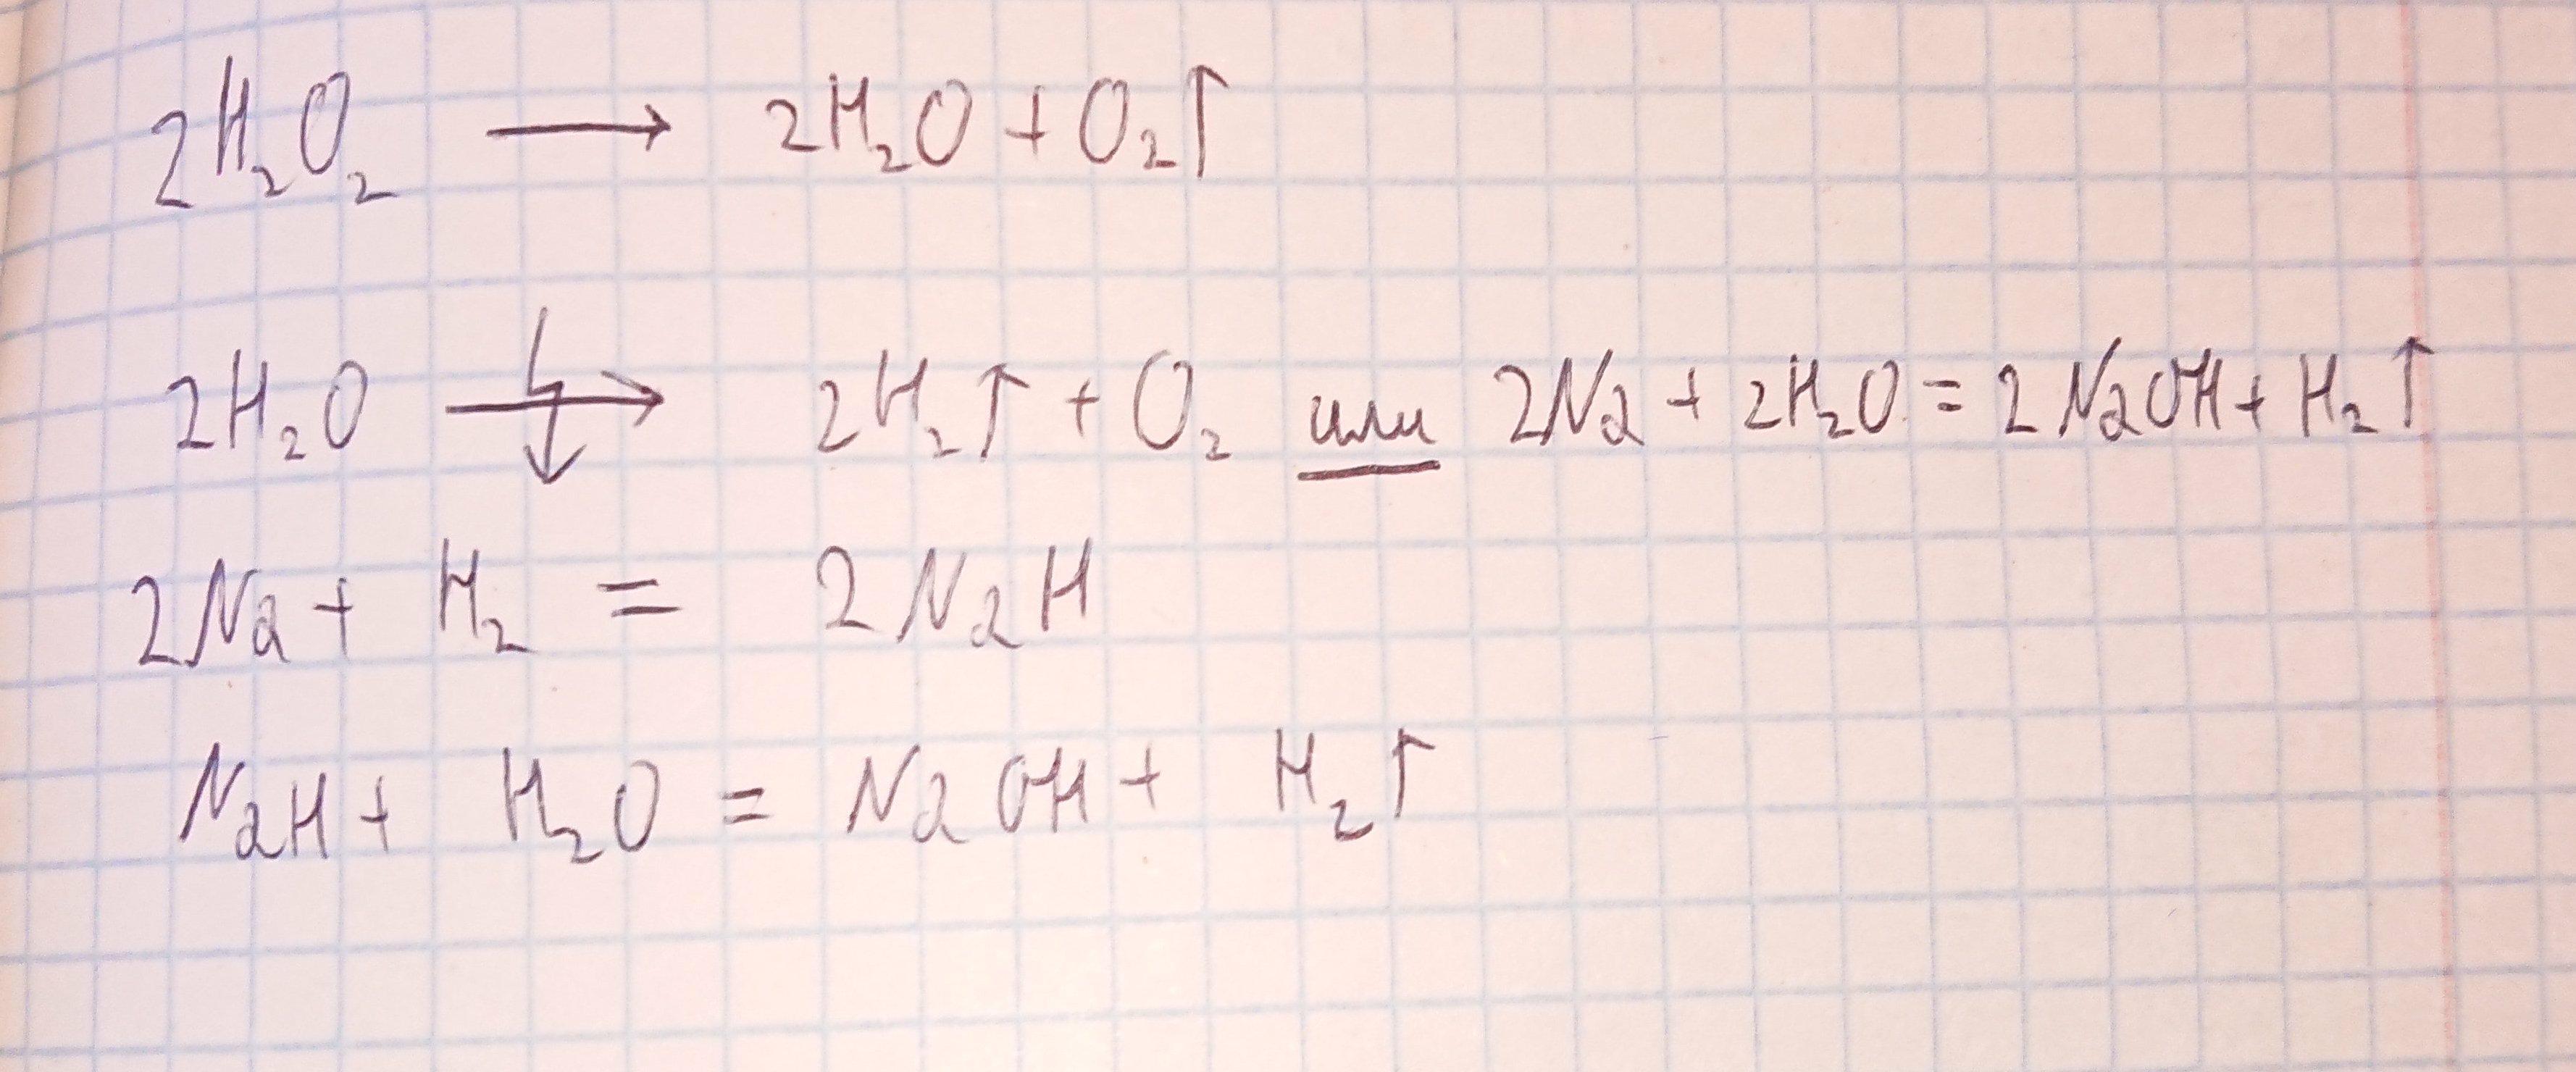 2H₂O₂ → 2H₂O + O₂↑
2H₂O → 2H₂↑ + O₂ или 2Na + 2H₂O = 2NaOH + H₂↑
2Na + H₂ = 2NaH
NaH + H₂O = NaOH + H₂↑